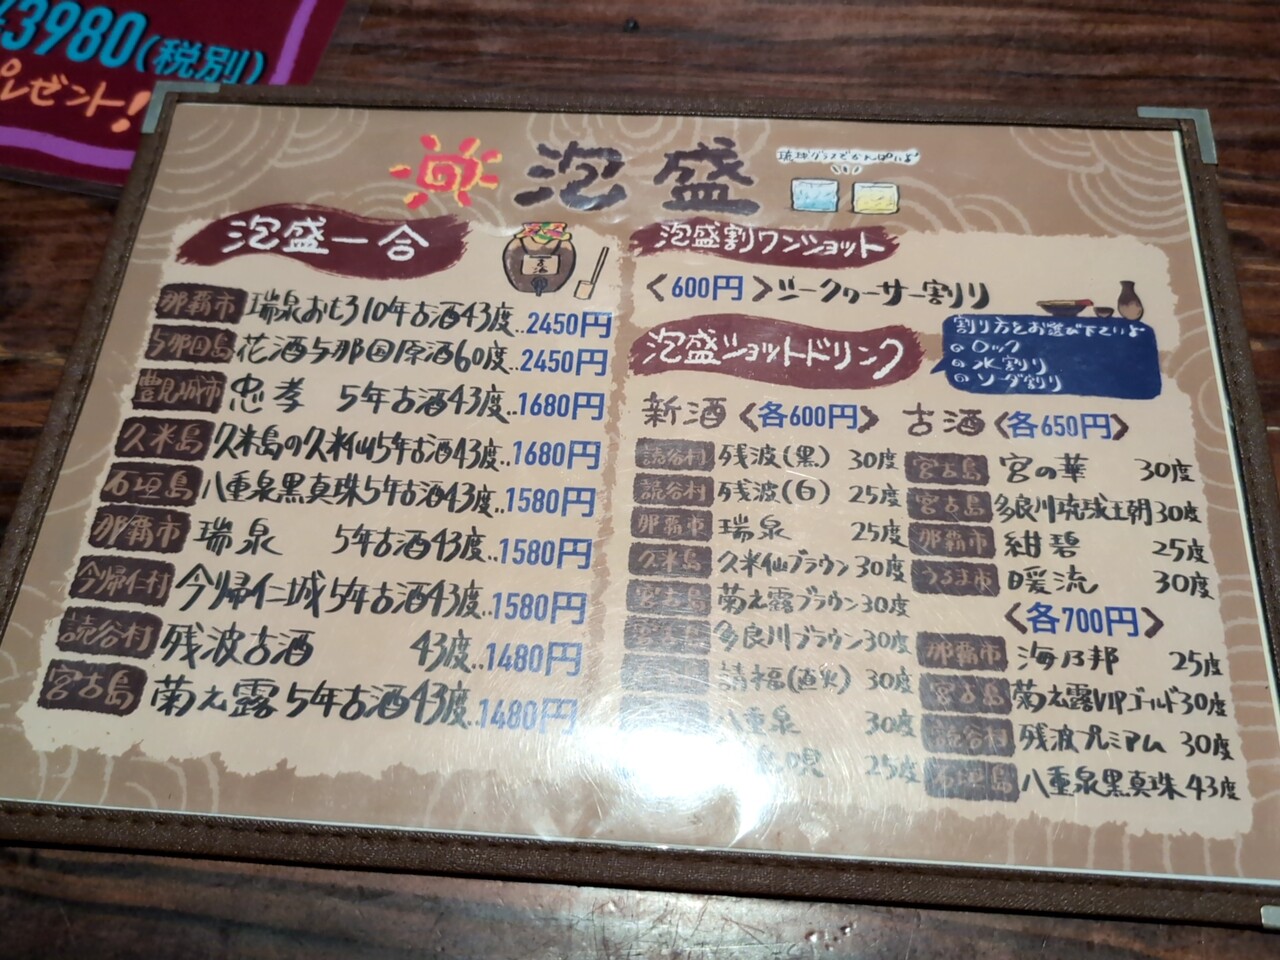 ¥3980(税別)
プレゼント!
泡盛
琉球グラスでかんぱいよ
泡盛一合
那覇市 瑞泉おもろ10年古酒43度..2450円
与那国島 花酒与那国原酒60度..2450円
豊見城市 忠孝 5年古酒43度..1680円
久米島 久米島の久米仙5年古酒43度..1680円
石垣島 八重泉黒真珠5年古酒43度..1580円
那覇市 瑞泉 5年古酒43度..1580円
今帰仁村 今帰仁城5年古酒43度..1580円
読谷村 残波古酒 43度..1480円
宮古島 菊之露5年古酒43度..1480円
泡盛割ワンショット
〈600円〉シークヮーサー割り
泡盛ショットドリンク
割り方をお選び下さいよ
ロック
水割り
ソーダ割り
新酒〈各600円〉
読谷村 残波(黒) 30度
読谷村 残波(白) 25度
那覇市 瑞泉 25度
久米島 久米仙ブラウン30度
宮古島 菊之露ブラウン30度
多良川ブラウン30度
請福(直火) 30度
八重泉 30度
唄 25度
古酒〈各650円〉
宮古島 宮の華 30度
宮古島 多良川琉球王朝30度
那覇市 紺碧 25度
うるま市 暖流 30度
〈各700円〉
那覇市 海乃邦 25度
宮古島 菊之露VIPゴールド30度
読谷村 残波プレミアム 30度
石垣島 八重泉黒真珠43度